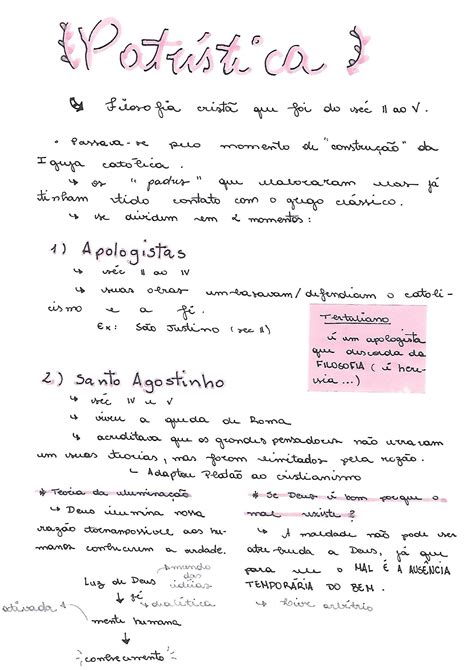 Patrística
↳ Filosofia cristã que foi do séc II ao V.
• Passava-se pelo momento de "construção" da
Igreja católica.
↳ os "padres" que elaboraram mas já
tinham tido contato com o grego clássico.
↳ se dividem em 2 momentos:
1) Apologistas
↳ séc II ao IV
↳ suas obras embasavam/defendiam o catoli-
cismo e a fé.
Ex: São Justino (sec II)
Tertuliano
é um apologista
que discorda da
FILOSOFIA (é here-
sia ...)
2) Santo Agostinho
↳ séc IV e V
↳ viveu a queda de Roma
↳ acreditava que os grandes pensadores não erraram
em suas teorias, mas foram limitados pela razão.
↳ Adaptou Platão ao cristianismo
* Teoria da iluminação
↳ Deus ilumina nossa
razão tornanpossível aos hu-
manos conhecerem a verdade.
mundo
das
ideias
Luz de Deus
↓ fé → dialética
ativada
mente humana
↓
conhecimento
* Se Deus é bom porque o
mal existe?
↳ A maldade não pode ser
atribuída a Deus, já que
para ele o MAL É A AUSÊNCIA
TEMPORÁRIA DO BEM.
↳ livre arbítrio